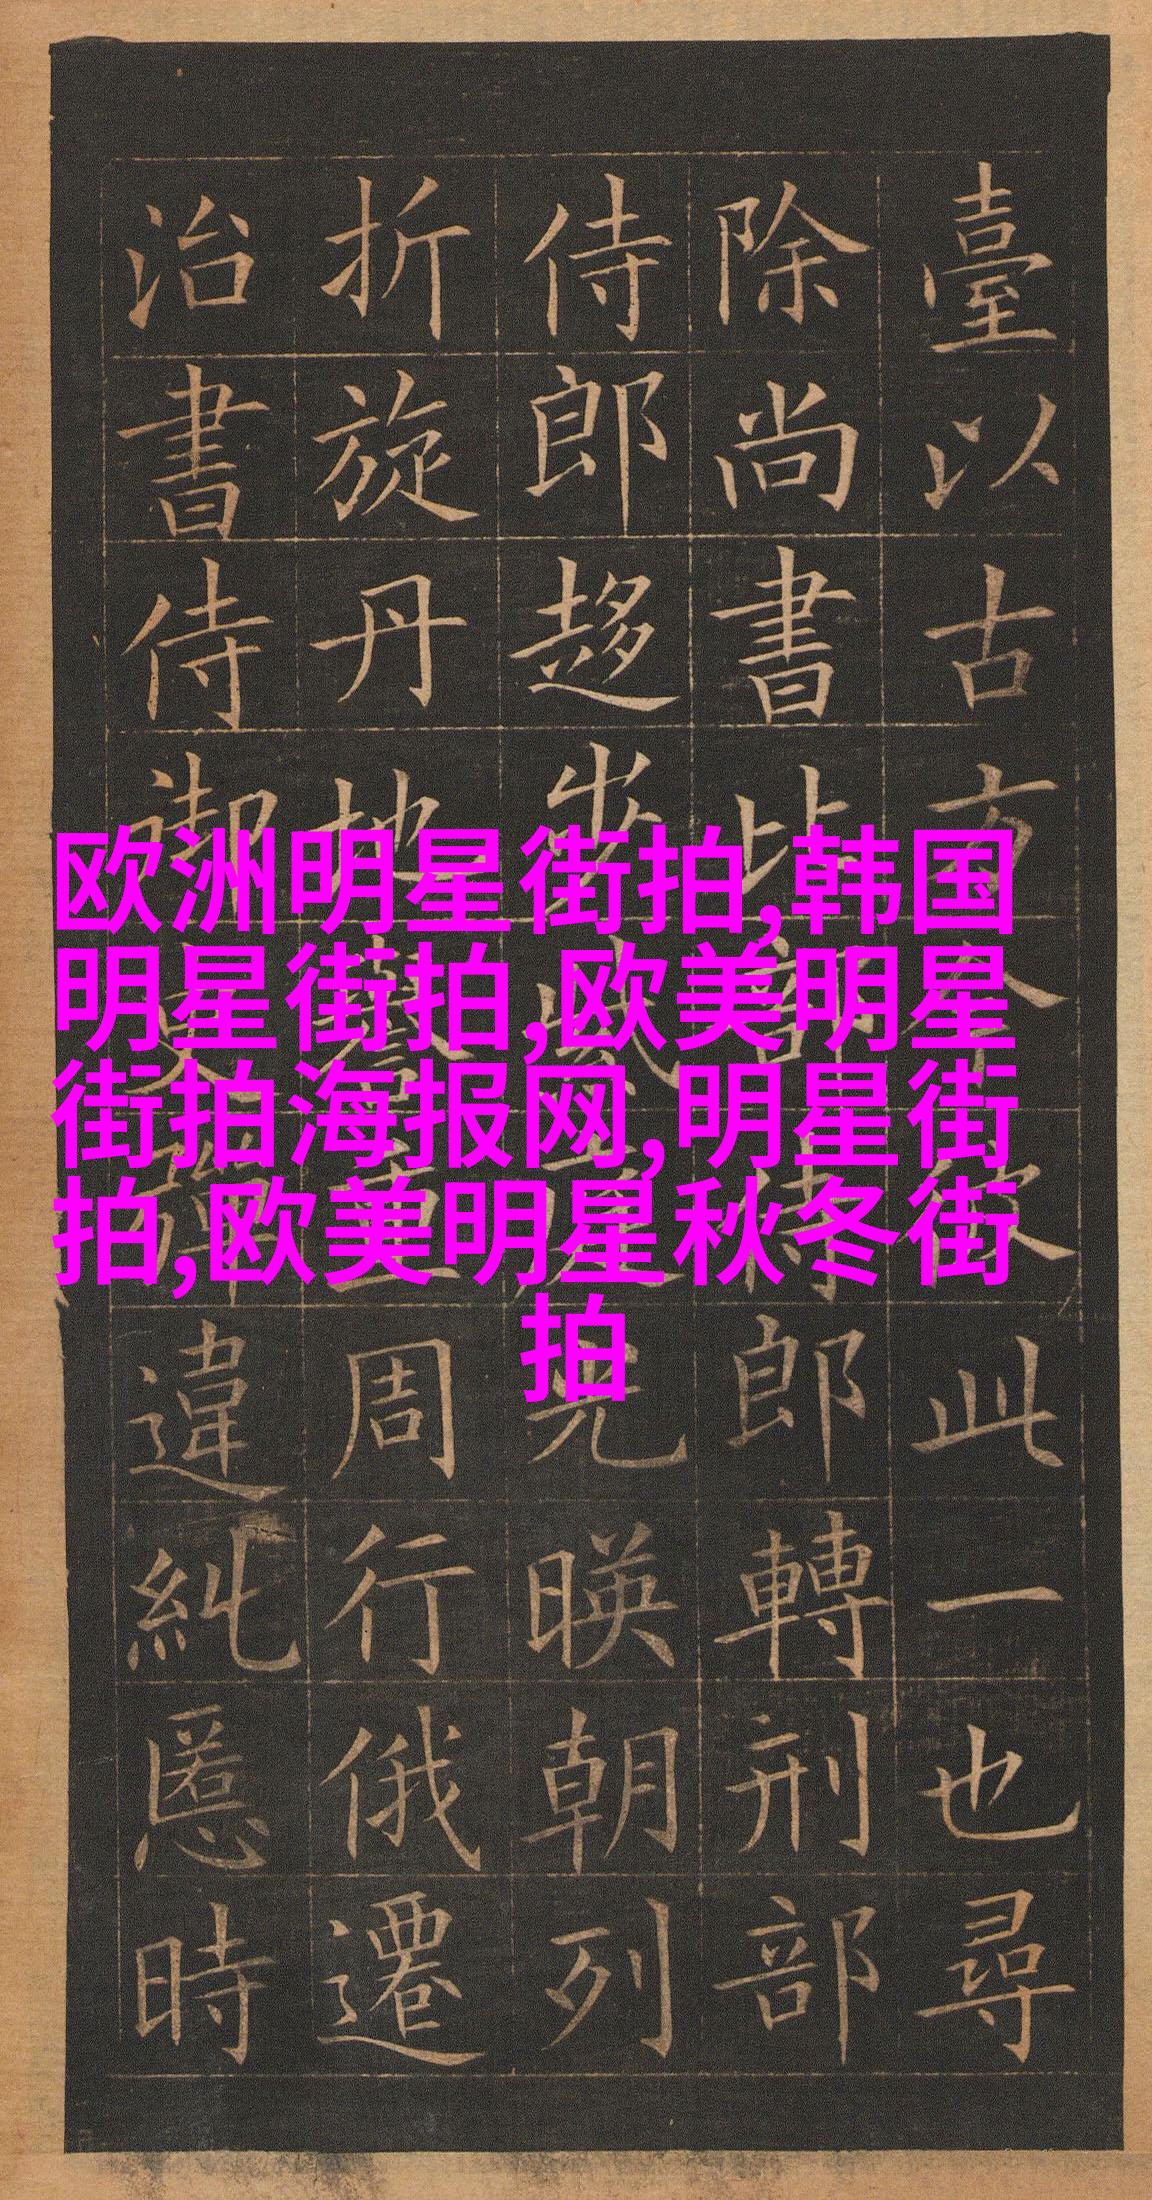 臺以古此一也尋
除尚書比部侍郎轉刑部
侍郎趍步光暎朝列
折旋丹地譽重周行俄遷
治書侍御史彈違糺慝時
欧洲明星街拍,韩国
明星街拍,欧美明星
街拍海报网,明星街
拍,欧美明星秋冬街
拍